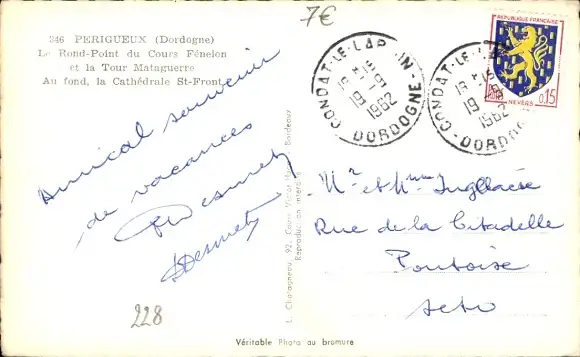 7€
346 PERIGUEUX (Dordogne)
Le Rond-Point du Cours Fénelon
et la Tour Mataguerre
Au fond, la Cathédrale St-Front
Amical souvenir
de vacances
Desmet
Desmet
228
L. Chatagneau, 92, Cours Victor Hugo, Bordeaux
Reproduction interdite
CONDAT-LE-LARDIN
19
1962
DORDOGNE
CONDAT-LE-
19
1962
DORDOGNE
REPUBLIQUE FRANÇAISE
POSTES
0,15
NEVERS
Mr et Mme
Rue de la Citadelle
Pontoise
Véritable Photo au bromure